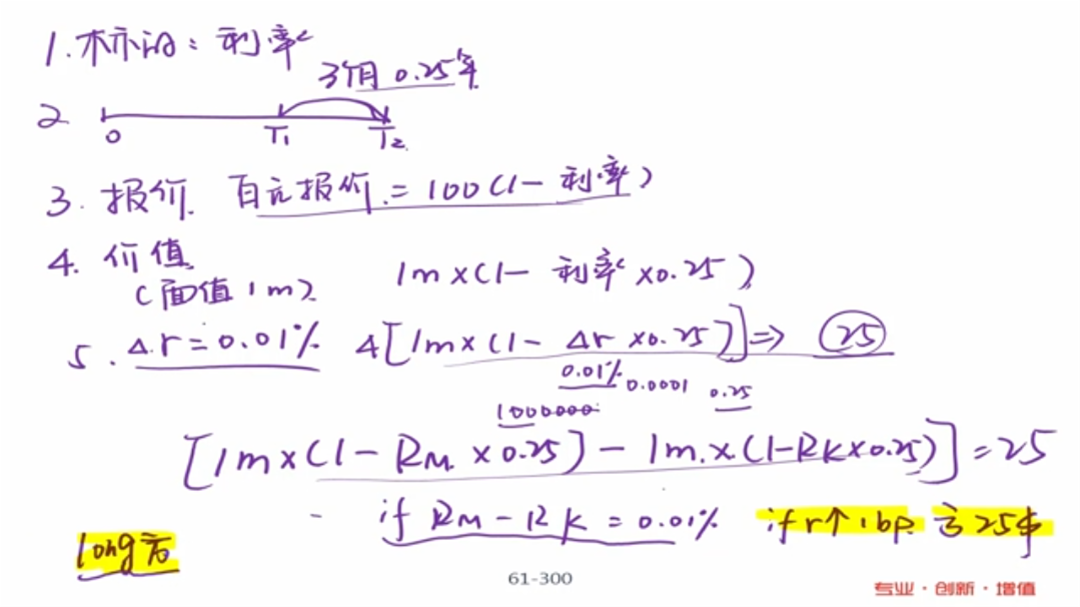 1. 标的：利率
3个月 0.25年
2
0 T₁ T₂
3. 报价. 百元报价 = 100(1- 利率)
4. 价值
(面值1m) 1m×(1- 利率×0.25)
5. Δr=0.01% 4[1m×(1- Δr×0.25)]⇒ 25
0.01% 0.0001 0.25
1000000
[1m×(1-RM×0.25)-1m×(1-RK×0.25)]=25
if RM-RK=0.01% if r↑1bp. 25$
long方
61-300
专业·创新·增值